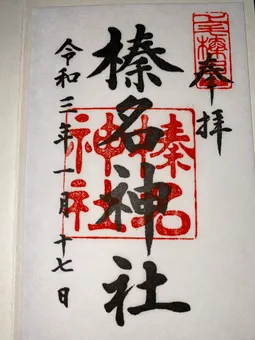 奉拝
榛名神社
令和三年一月十七日
榛名神社